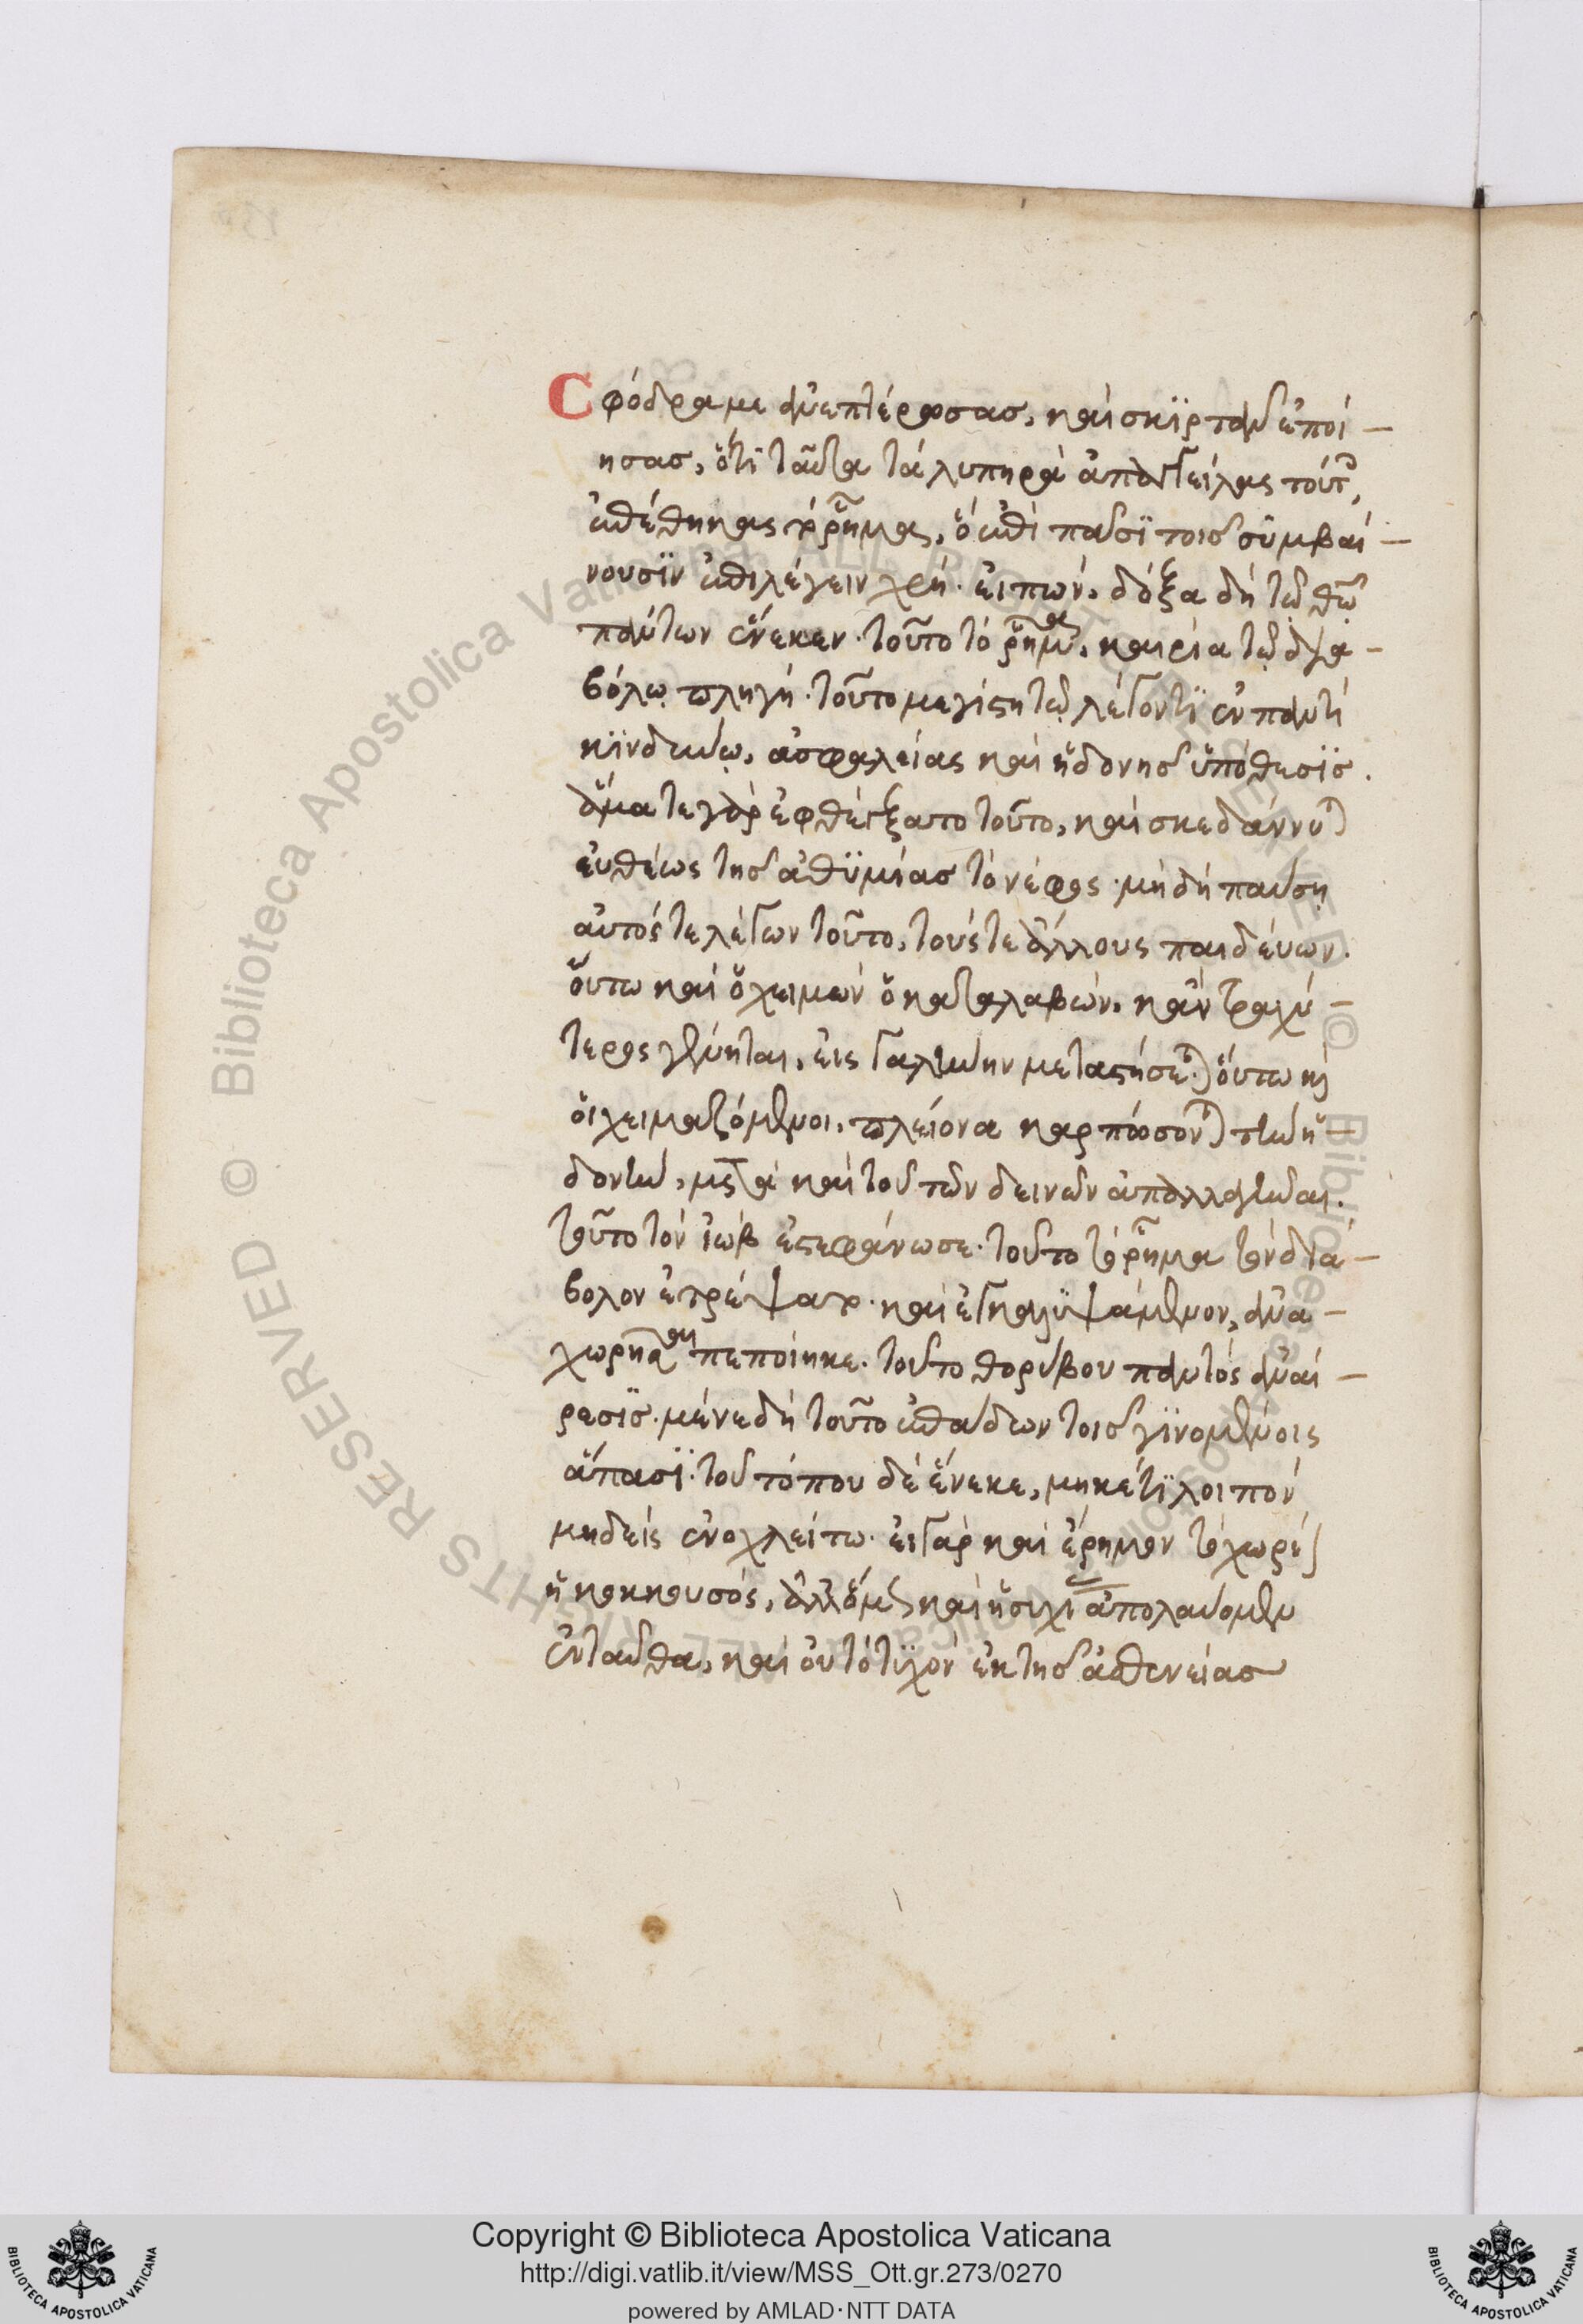 Σφόδρα με ἀνεπτέρωσας, καὶ σκϊρτᾶν ἐποί-
ησας, ὅτϊ ταῦτα τὰ λυπηρὰ ἀποστείλας τούτ(οις)
ἐπέθηκας τὸ ῥῆμα, ὃ ἐπὶ πᾶσϊ τοῖς συμβαί-
νουσϊν ἐπιλέγειν χρή. εἰπών, δόξα δὴ τῷ θῶ
πάντων ἕνεκεν. τοῦτο τὸ ῥῆμα, καιρία τῷ δια-
βόλῳ πληγή. τοῦτο μεγίστη τῷ λέγοντϊ ἐν παντὶ
κϊνδύνῳ, ἀσφαλείας καὶ ἡδονῆς ὑπόθεσϊς.
ἅμα τε γὰρ ἐφθέγξατο τοῦτο, καὶ σκεδάννυ(ται)
εὐθέως τῆς ἀθϋμίας τὸ νέφος. μὴ δὴ παύσῃ
αὐτός τε λέγων τοῦτο, τούς τε ἄλλους παιδεύων.
οὕτω καὶ ὁ χειμών ὁ καταλαβών, κἂν τραχύ-
τερος γένηται, εἰς γαλήνην μεταστήσε(ται) οὕτω κ(αὶ)
οἱ χειμαζόμενοι, πλείονα καρπώσον(ται) τὴν ἡ-
δονήν, μετὰ καὶ τοῦ τῶν δεινῶν ἀπαλλαγῆναι.
τοῦτο τὸν ἰὼβ ἐστεφάνωσε. τοῦτο τὸ ῥῆμα τὸν διά-
βολον ἐτρέψατο. καὶ ἐγκαλϋψάμενον, ἀνα-
χωρῆσαι πεποίηκε. τοῦτο θορύβου παντὸς ἀναί-
ρεσϊς. μένε δὴ τοῦτο ἐπᾴδων τοῖς γϊνομένοις
ἅπασϊ. τοῦ τόπου δὲ ἕνεκε, μηκέτϊ λοιπὸν
μηδεὶς ἐνοχλείτω. εἰ γὰρ καὶ ἔρημον τὸ χωρί(ον)
ἡ κοκκουσός, ἀλλ᾽ ὅμως καὶ ἡσυχί(ας) ἀπολαύομεν
ἐνταῦθα, καὶ οὐ τὸ τϋχὸν ἐκ τῆς ἀσθενείας
Copyright © Biblioteca Apostolica Vaticana
http://digi.vatlib.it/view/MSS_Ott.gr.273/0270
powered by AMLAD·NTT DATA